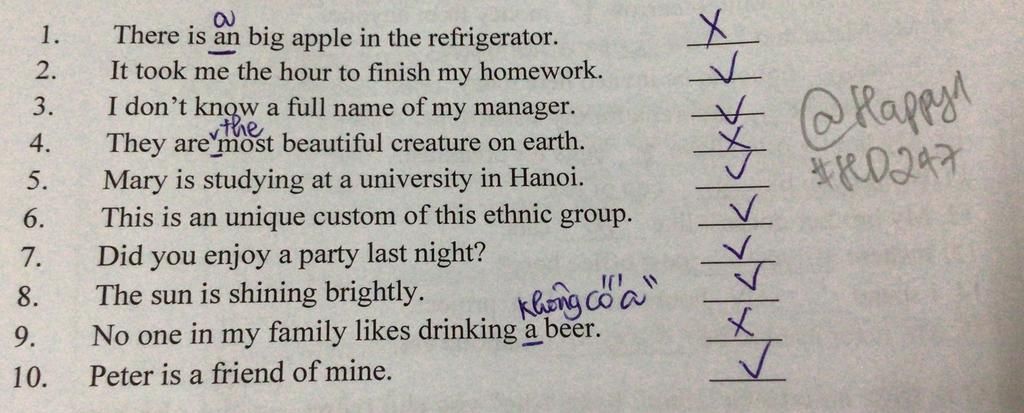 1. There is an big apple in the refrigerator. X
a
2. It took me the hour to finish my homework. ✓
3. I don't know a full name of my manager. ✓
the
4. They are most beautiful creature on earth. X
5. Mary is studying at a university in Hanoi. ✓
6. This is an unique custom of this ethnic group. ✓
7. Did you enjoy a party last night? ✓
8. The sun is shining brightly. ✓
không có "a"
9. No one in my family likes drinking a beer. X
10. Peter is a friend of mine. ✓
@Happy1
#HD247